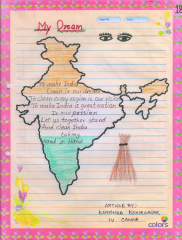 My Dream
To make India
Clean is our dream
To clean every region is our vision
To make India a great nation
Is our passion
Let us together stand
And clean India
taking
Hand in Hand
ARTICLE BY:
IV
colors